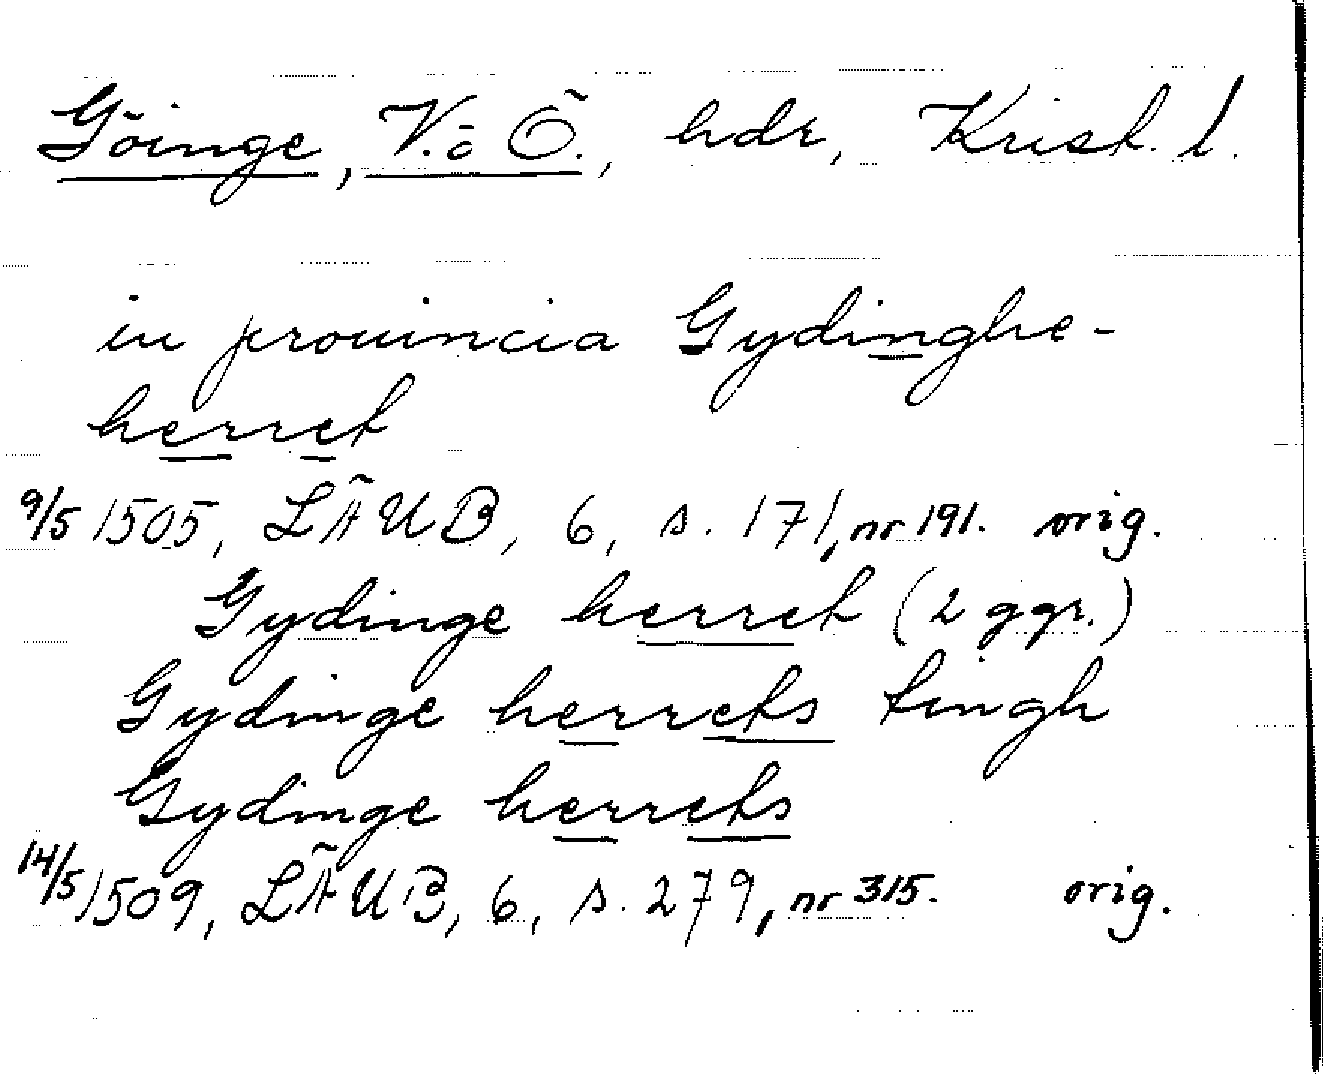 Göinge, V. å Ö., hdr, Krist. l.
in prouincia Gydinghe-
herret
9/5 1505, LÄUB, 6, s. 171, nr 191. orig.
Gydinge herret (2 ggr.)
Gydinge herrets tingh
Gydinge herrets
14/5 1509, LÄUB, 6, s. 279, nr 315. orig.